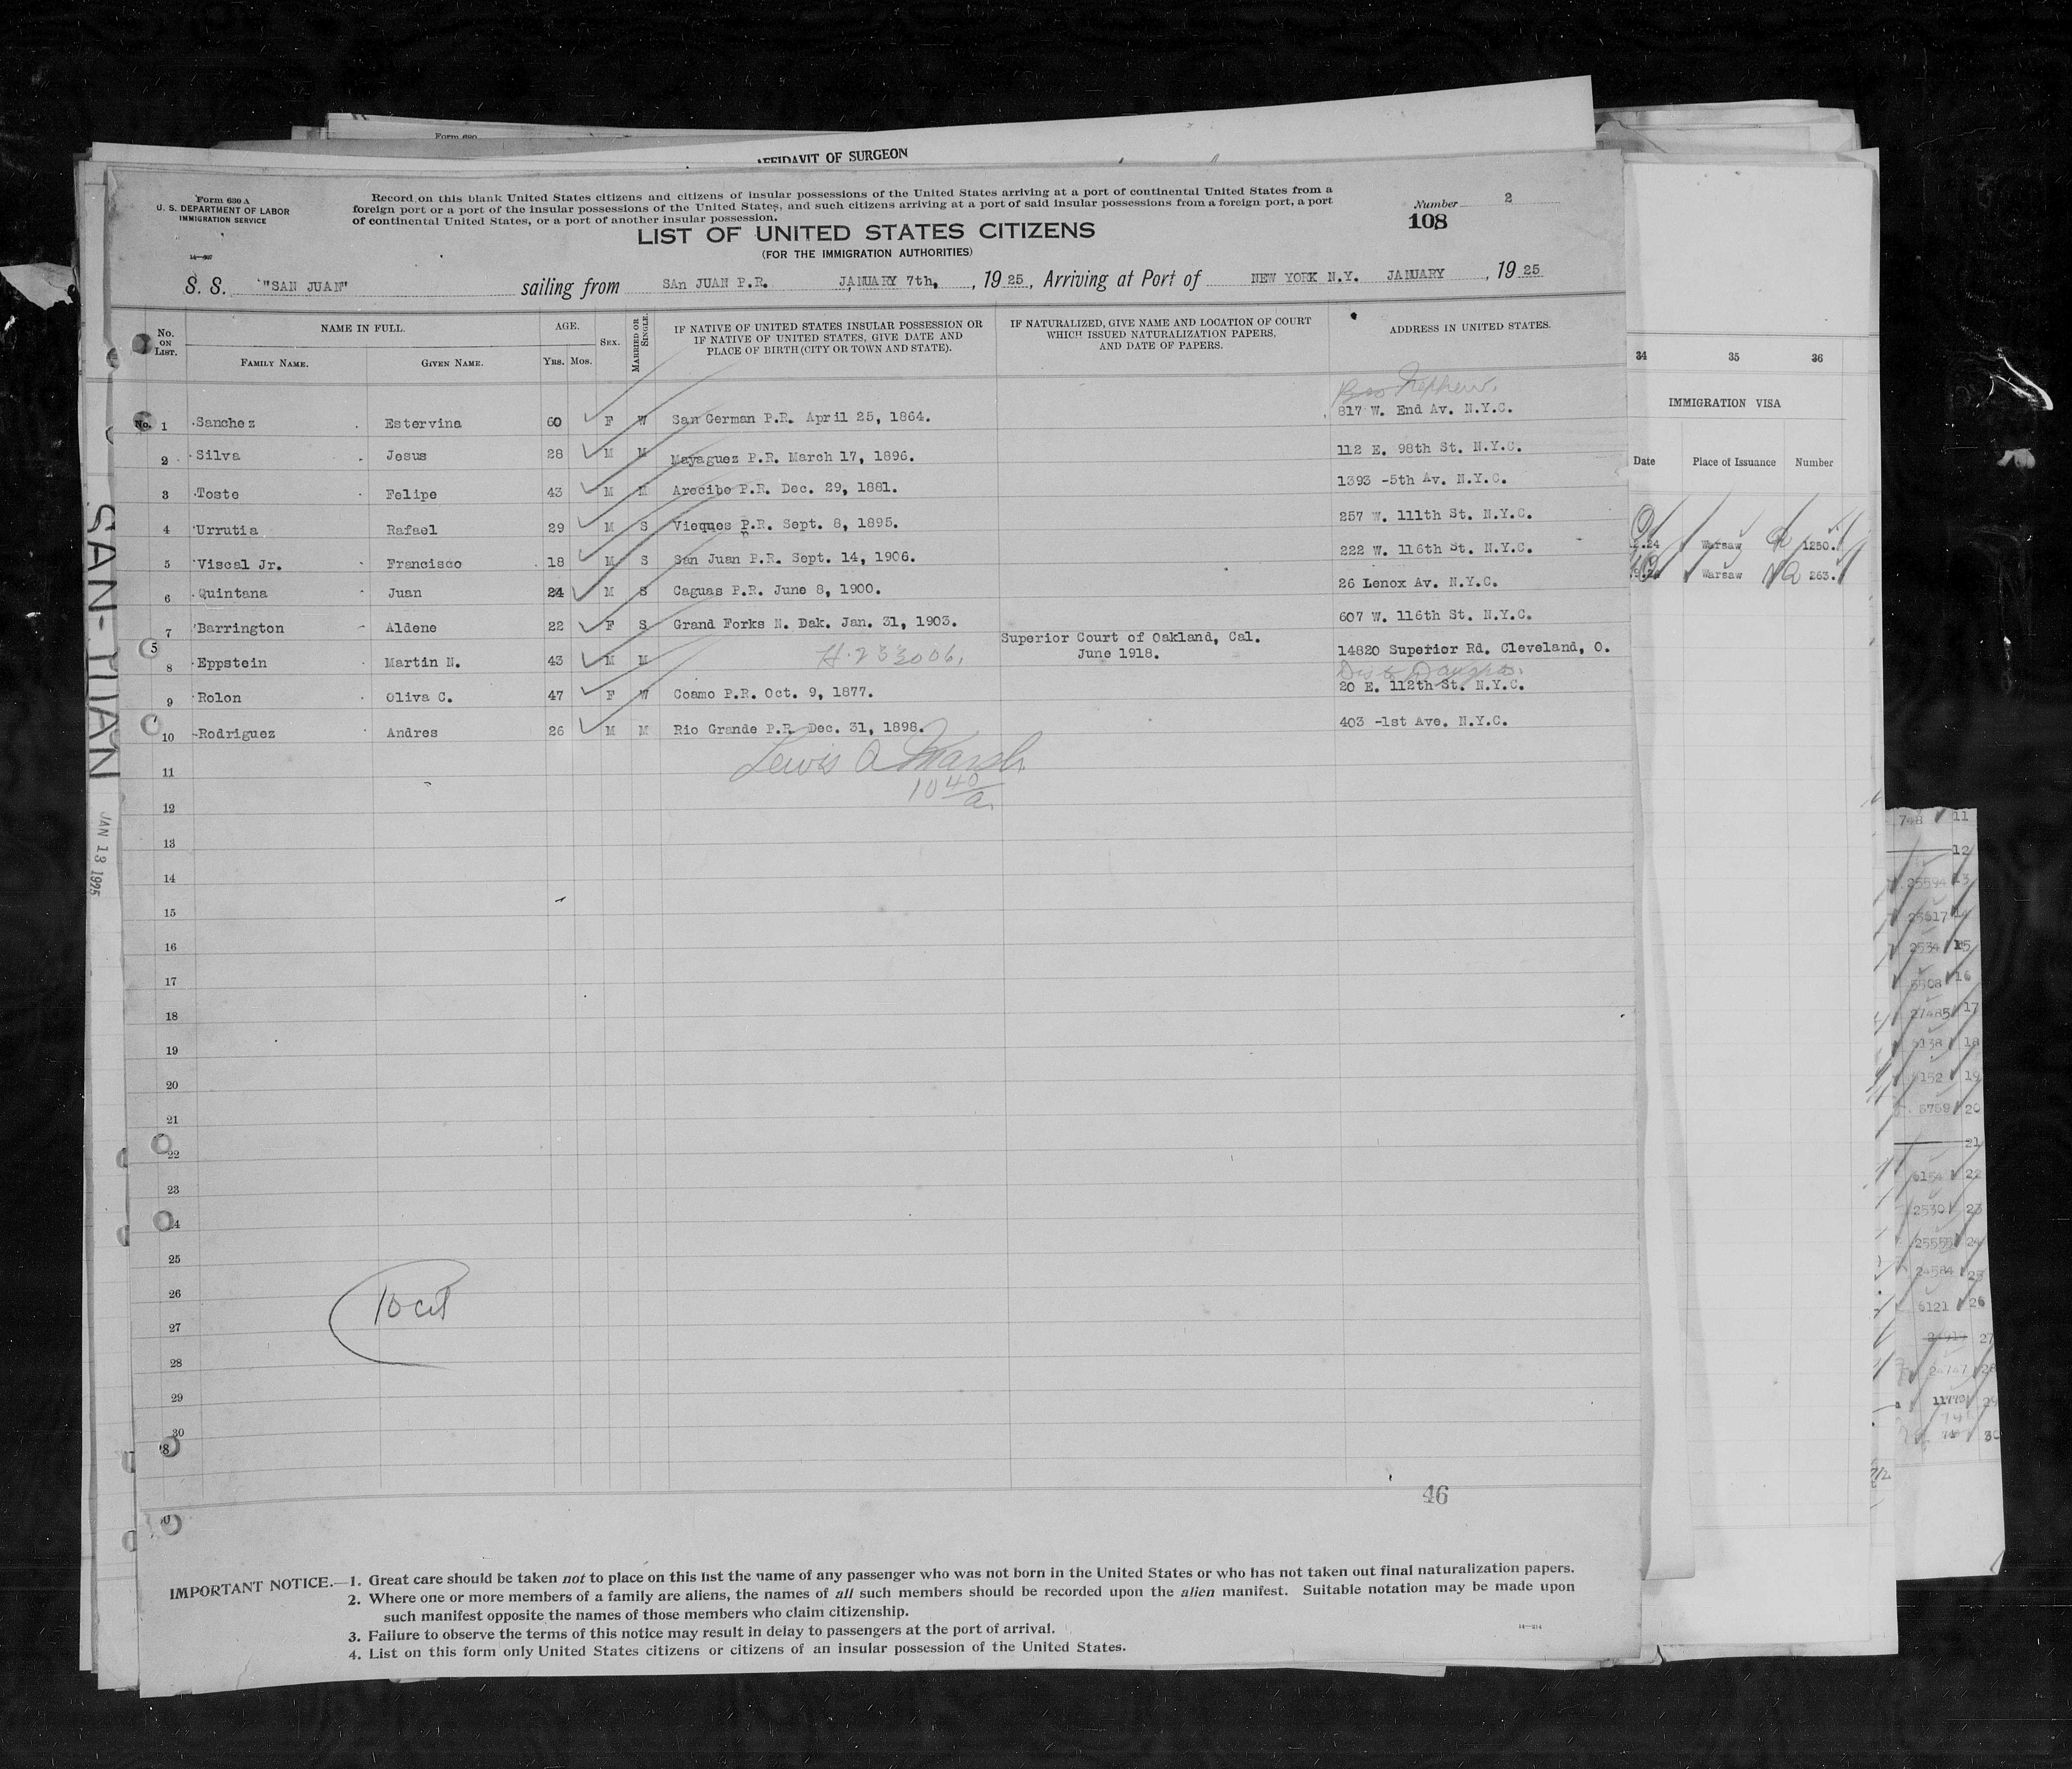 Form 630
AFFIDAVIT OF SURGEON
Form 630 A
U. S. DEPARTMENT OF LABOR
IMMIGRATION SERVICE
Record on this blank United States citizens and citizens of insular possessions of the United States arriving at a port of continental United States from a
foreign port or a port of the insular possessions of the United States, and such citizens arriving at a port of said insular possessions from a foreign port, a port
of continental United States, or a port of another insular possession.
Number 2
108
LIST OF UNITED STATES CITIZENS
(FOR THE IMMIGRATION AUTHORITIES)
S. S. "SAN JUAN" sailing from SAn JUAN P.R. JANUARY 7th, , 1925, Arriving at Port of NEW YORK N.Y. JANUARY , 1925
No. ON LIST. NAME IN FULL. AGE. SEX. MARRIED OR SINGLE. IF NATIVE OF UNITED STATES INSULAR POSSESSION OR IF NATIVE OF UNITED STATES, GIVE DATE AND PLACE OF BIRTH (CITY OR TOWN AND STATE). IF NATURALIZED, GIVE NAME AND LOCATION OF COURT WHICH ISSUED NATURALIZATION PAPERS, AND DATE OF PAPERS. ADDRESS IN UNITED STATES.
FAMILY NAME. GIVEN NAME. Yrs. Mos.
Nephew.
No. 1 Sanchez Estervina 60 F W San German P.R. April 25, 1864. 817 W. End Av. N.Y.C.
2 Silva Jesus 28 M M Mayaguez P.R. March 17, 1896. 112 E. 98th St. N.Y.C.
3 Toste Felipe 43 M M Arecibo P.R. Dec. 29, 1881. 1393 -5th Av. N.Y.C.
4 Urrutia Rafael 29 M S Vieques P.R. Sept. 8, 1895. 257 W. 111th St. N.Y.C.
5 Viscal Jr. Francisco 18 M S San Juan P.R. Sept. 14, 1906. 222 W. 116th St. N.Y.C.
6 Quintana Juan 24 M S Caguas P.R. June 8, 1900. 26 Lenox Av. N.Y.C.
7 Barrington Aldene 22 F S Grand Forks N. Dak. Jan. 31, 1903. 607 W. 116th St. N.Y.C.
5
8 Eppstein Martin N. 43 M M H. 233006. Superior Court of Oakland, Cal. June 1918. 14820 Superior Rd. Cleveland, O.
9 Rolon Oliva C. 47 F W Coamo P.R. Oct. 9, 1877. 20 E. 112th St. N.Y.C.
10 Rodriguez Andres 26 M M Rio Grande P.R. Dec. 31, 1898. 403 -1st Ave. N.Y.C.
Lewis A Marsh
10 40/a.
11
12
13
14
15
16
17
18
19
20
21
22
23
24
25
26
27
28
29
30
10 cit
46
SAN-JUAN
JAN 13 1925
IMPORTANT NOTICE.—1. Great care should be taken not to place on this list the name of any passenger who was not born in the United States or who has not taken out final naturalization papers.
2. Where one or more members of a family are aliens, the names of all such members should be recorded upon the alien manifest. Suitable notation may be made upon
such manifest opposite the names of those members who claim citizenship.
3. Failure to observe the terms of this notice may result in delay to passengers at the port of arrival.
4. List on this form only United States citizens or citizens of an insular possession of the United States.
14—214
34 35 36
IMMIGRATION VISA
Date Place of Issuance Number
Warsaw 1250.
Warsaw 263.
748 11
12
25594 13
25617
2534 15
5508 16
27485 17
5138 18
6152 19
5759 20
21
6154 22
2530 23
25555 24
24584 25
6121 26
27
24747 28
11773 29
30